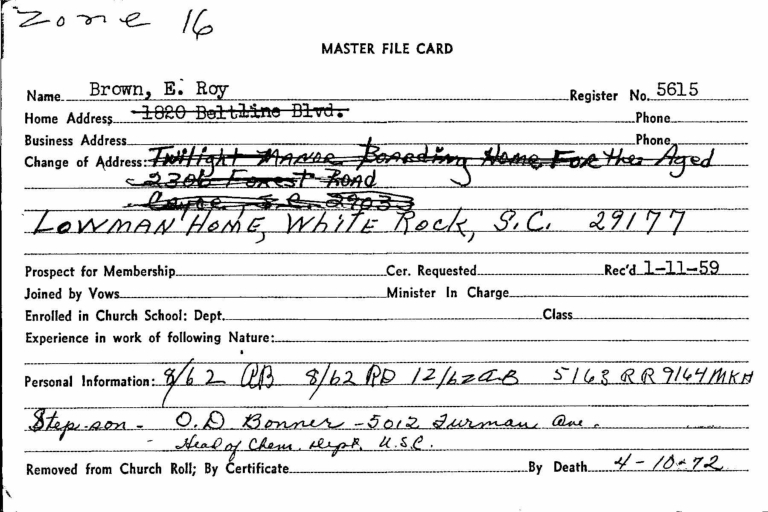 Zone 16
MASTER FILE CARD
Name Brown, E. Roy Register No. 5615
Home Address 1820 Beltline Blvd. Phone
Business Address Phone
Change of Address: Twilight Manor Boarding Home For The Aged
2306 Forest Road
Cayce S.C. 29033
LOWMAN HOME, WHITE ROCK, S.C. 29177
Prospect for Membership Cer. Requested Rec'd 1-11-59
Joined by Vows Minister In Charge
Enrolled in Church School: Dept. Class
Experience in work of following Nature:
Personal Information: 8/62 AB 8/62 RD 12/62 AB 5/63 RR 9/64 MKH
Step-son - O.D. Bonner - 5012 Furman Ave.
Head of Chem. Dept. U.S.C.
Removed from Church Roll; By Certificate By Death 4-10-72